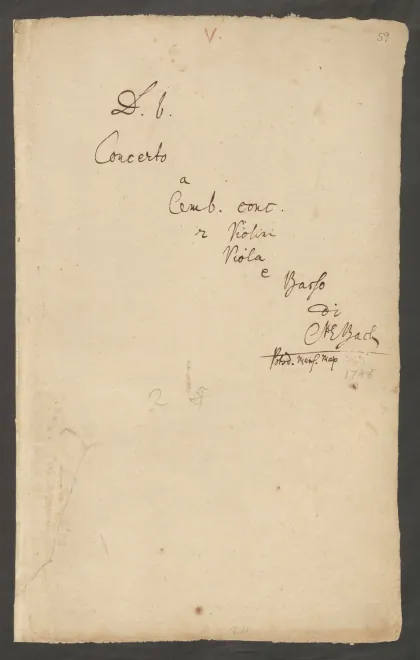 V.
59
D. b.
Concerto
a
Cemb. conc.
2 Violini
Viola
e
Basso
Di
CPE Bach
Potsd. Mens. Maj
1748
2